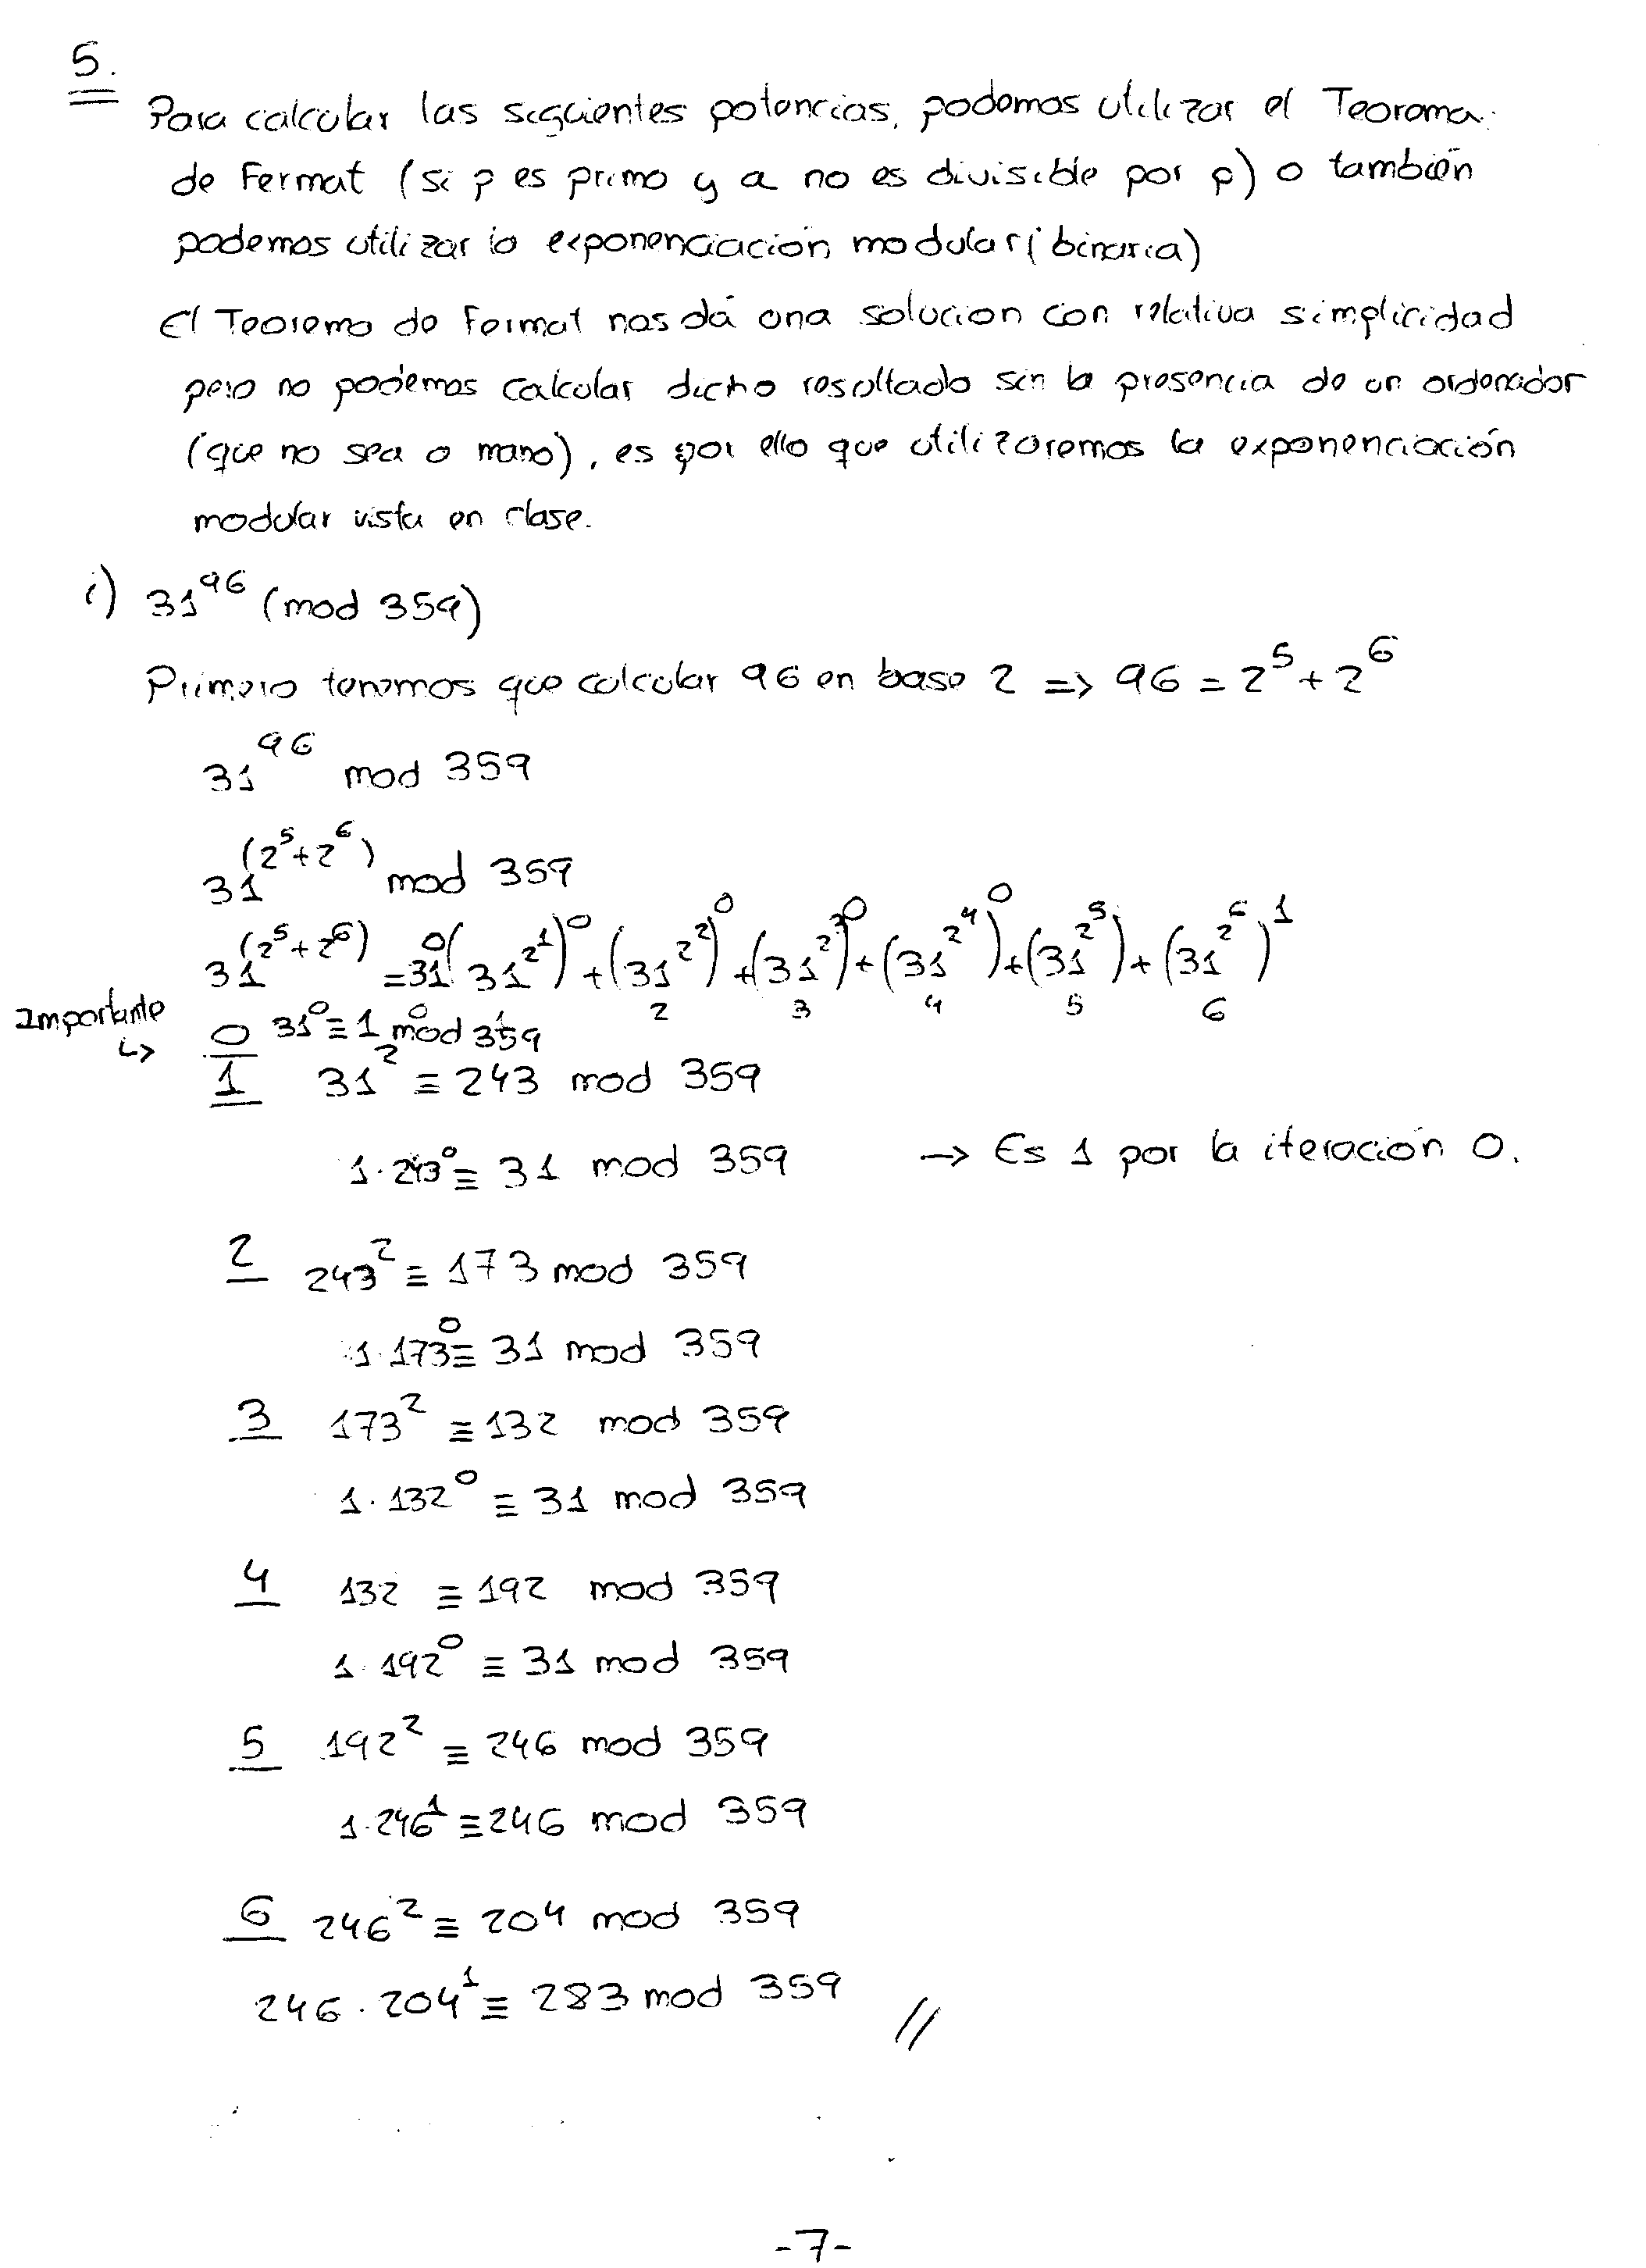 5.
Para calcular las siguientes potencias, podemos utilizar el Teorema
de Fermat (si p es primo y a no es divisible por p) o también
podemos utilizar la exponenciación modular (binaria)
El Teorema de Fermat nos dá una solucion con relativa simplicidad
pero no podemos calcular dicho resultado sin la presencia de un ordenador
(que no sea a mano), es por ello que utilizaremos la exponenciación
modular vista en clase.
i) 31^96 (mod 359)
Primero tenemos que calcular 96 en base 2 => 96 = 2^5 + 2^6
31^96 mod 359
31^(2^5+2^6) mod 359
31^(2^5+2^6) = 31^0 (31^2^1)^0 + (31^2^2)^0 + (31^2^3)^0 + (31^2^4)^0 + (31^2^5) + (31^2^6)^1
0 1 2 3 4 5 6
Importante ↳ 0 31^0 ≡ 1 mod 359
1 31^2 ≡ 243 mod 359
1·243^0 ≡ 31 mod 359 → Es 1 por la iteración 0.
2 243^2 ≡ 173 mod 359
1·173^0 ≡ 31 mod 359
3 173^2 ≡ 132 mod 359
1·132^0 ≡ 31 mod 359
4 132 ≡ 192 mod 359
1·192^0 ≡ 31 mod 359
5 192^2 ≡ 246 mod 359
1·246^1 ≡ 246 mod 359
6 246^2 ≡ 204 mod 359
246·204^1 ≡ 283 mod 359 //
-7-